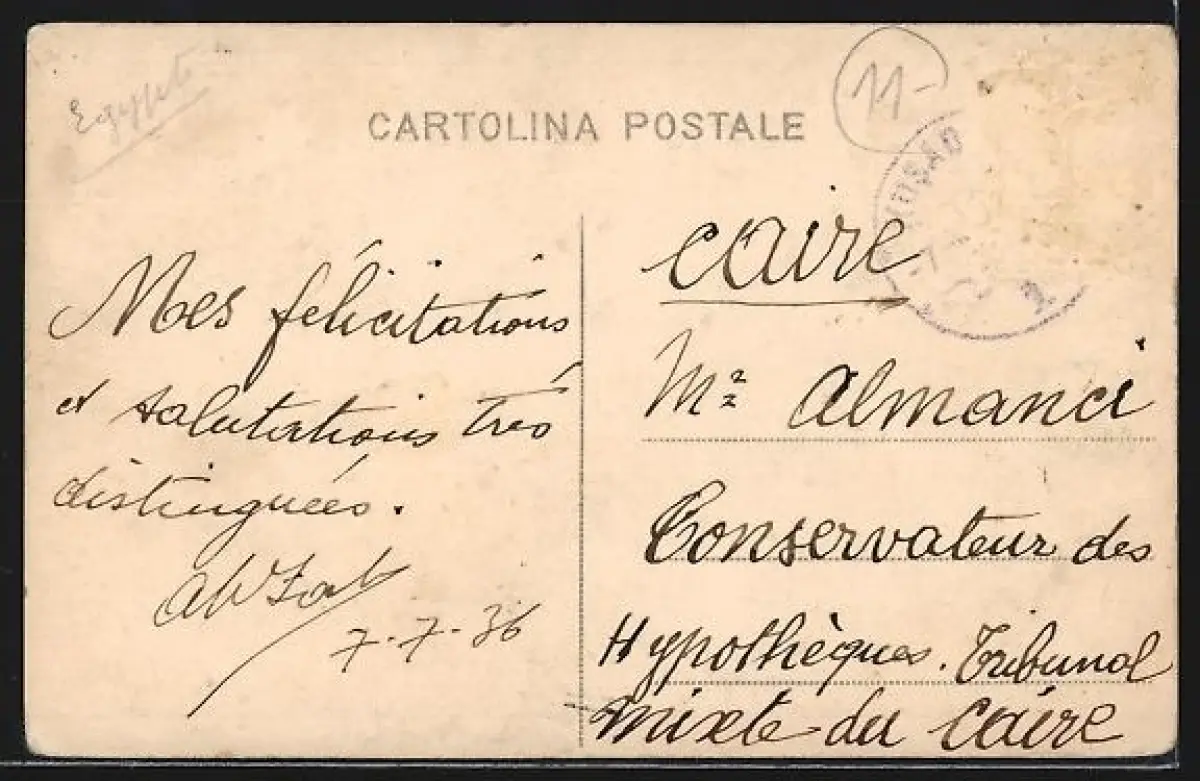 Egypt
11-
CARTOLINA POSTALE
Caire
Mes félicitations
et salutations très
distinguées.
7-7-36
Mr Almanci
Conservateur des
Hypothèques. Tribunal
mixte du Caire